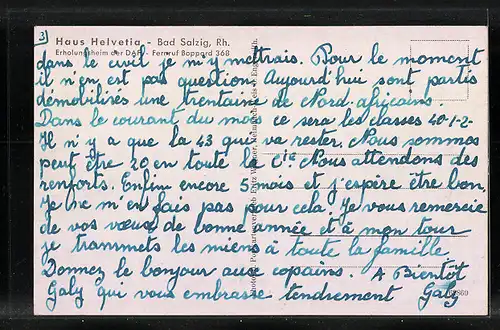 3
Haus Helvetia - Bad Salzig, Rh.
Erholungsheim der DAF - Fernruf Boppard 368
dans le civil je m'y mettrais. Pour le moment
il n'en est pas question. Aujourd'hui sont partis
démobilisés une trentaine de Nord-africains.
Dans le courant du mois ce sera les classes 40-1-2-
Il n'y a que la 43 qui va rester. Nous sommes
peut être 20 en toute la Cie. Nous attendons des
renforts. Enfin encore 5 mois et j'espère être bon.
Je ne m'en fais pas pour cela. Je vous remercie
de vos vœux de bonne année et à mon tour
je transmets les miens à toute la famille.
Donnez le bonjour aux copains. A Bientôt
Galy qui vous embrasse tendrement Galy